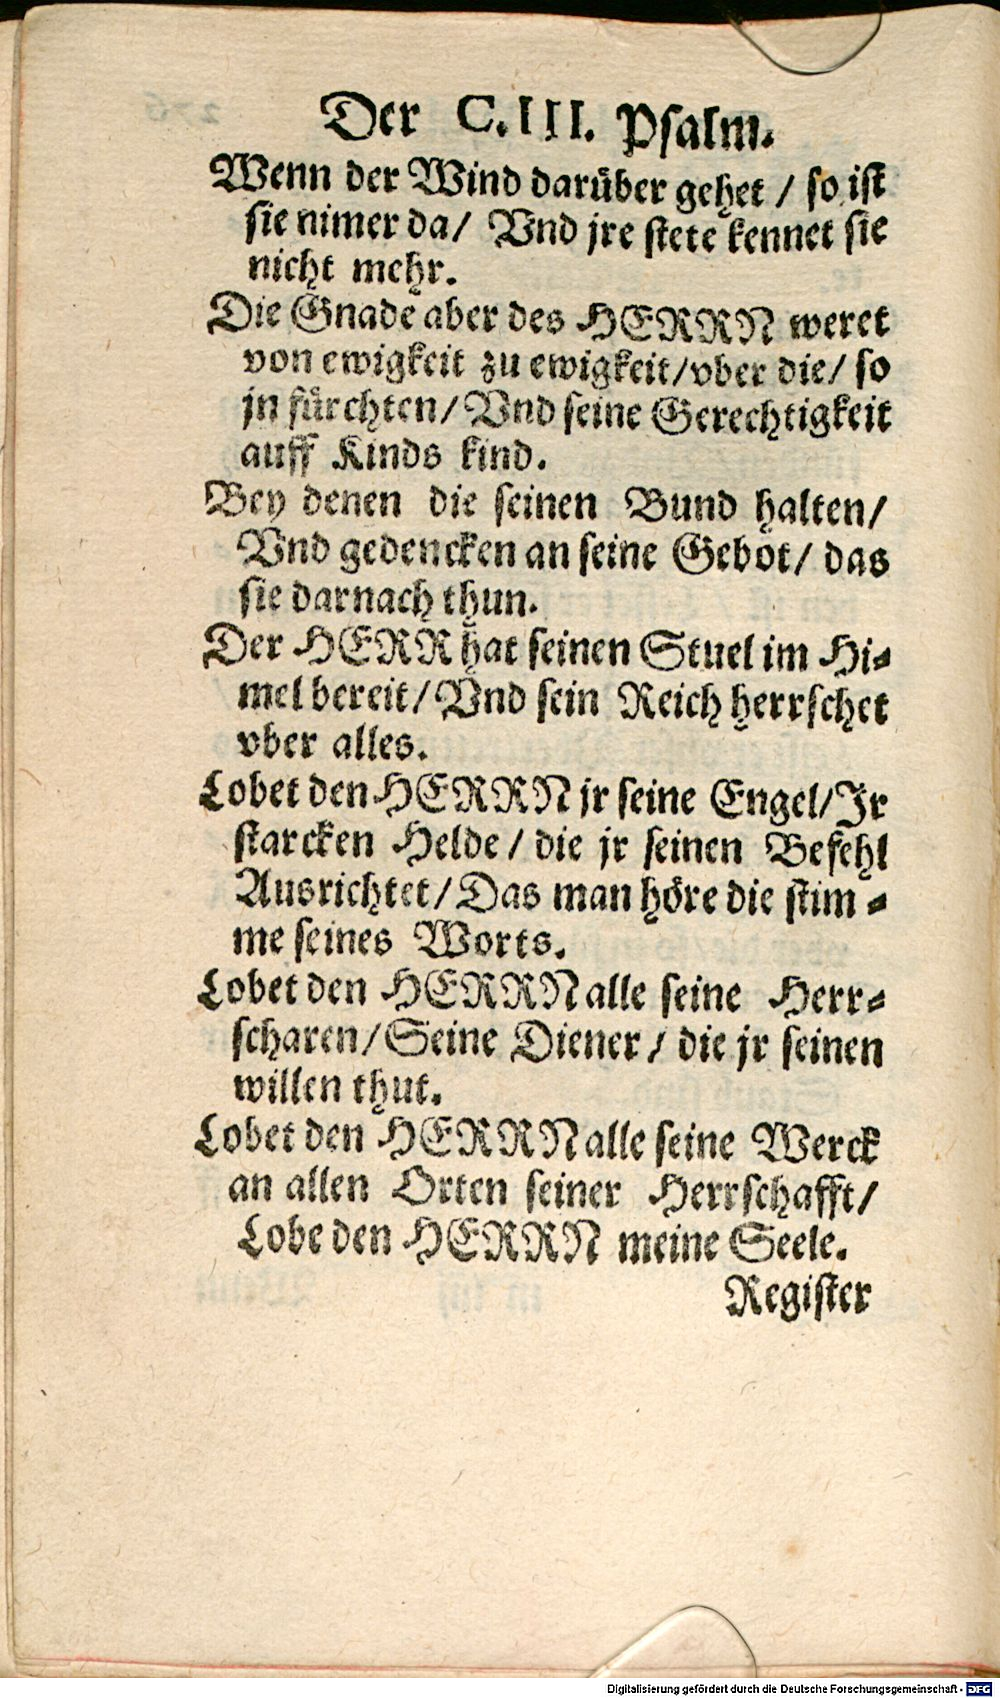 Der C.III. Psalm.
Wenn der Wind darüber gehet / so ist
sie nimer da/ Vnd jre stete kennet sie
nicht mehr.
Die Gnade aber des HERRN weret
von ewigkeit zu ewigkeit/vber die/ so
jn fürchten/ Vnd seine Gerechtigkeit
auff Kinds kind.
Bey denen die seinen Bund halten/
Vnd gedencken an seine Gebot/ das
sie darnach thun.
Der HERR hat seinen Stuel im Hi-
mel bereit/ Vnd sein Reich herrschet
vber alles.
Lobet den HERRN jr seine Engel/Jr
starcken Helde / die jr seinen Befehl
Ausrichtet/ Das man höre die stim-
me seines Worts.
Lobet den HERRN alle seine Herr-
scharen/ Seine Diener / die jr seinen
willen thut.
Lobet den HERRN alle seine Werck
an allen Orten seiner Herrschafft/
Lobe den HERRN meine Seele.
Register
Digitalisierung gefördert durch die Deutsche Forschungsgemeinschaft - DFG